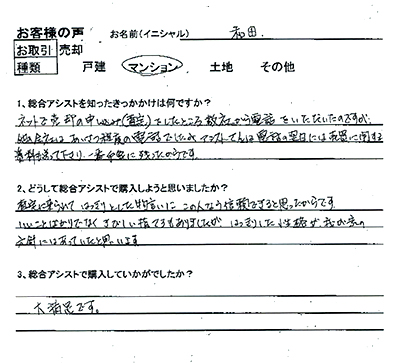 お客様の声 お名前(イニシャル) 和田.
お取引 売却
種類 戸建 マンション 土地 その他
1、総合アシストを知ったきっかけは何ですか?
ネットで売却の申し込み(査定)をしたところ数社から電話をいただいたのですが、
他会社はあいさつ程度の電話でしたが、アシストさんは電話の翌日には売買に関する
資料を送って下さり、一番印象に残ったからです。
2、どうして総合アシストで購入しようと思いましたか?
査定に来られて はっきりとした物言いに この人なら信頼できると思ったからです。
いいことばかりでなく きびしい指てきもありましたが はっきりした性格が我が家の
方針にはあっていたと思います
3、総合アシストで購入していかがでしたか?
大満足です。